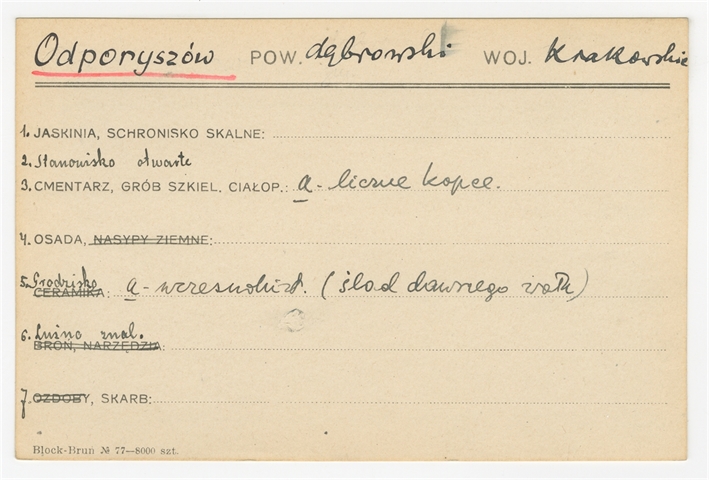 Odporyszów POW. dąbrowski WOJ. Krakowskie
1. JASKINIA, SCHRONISKO SKALNE:
2. Stanowisko otwarte
3. CMENTARZ, GRÓB SZKIEL. CIAŁOP.: a - liczne kopce.
4. OSADA, NASYPY ZIEMNE:
5. Grodzisko
CERAMIKA: a - wczesnohist. (ślad dawnego wału)
6. Luźno znal.
BROŃ, NARZĘDZIA:
7. OZDOBY, SKARB:
Block-Brun № 77—8000 szt.